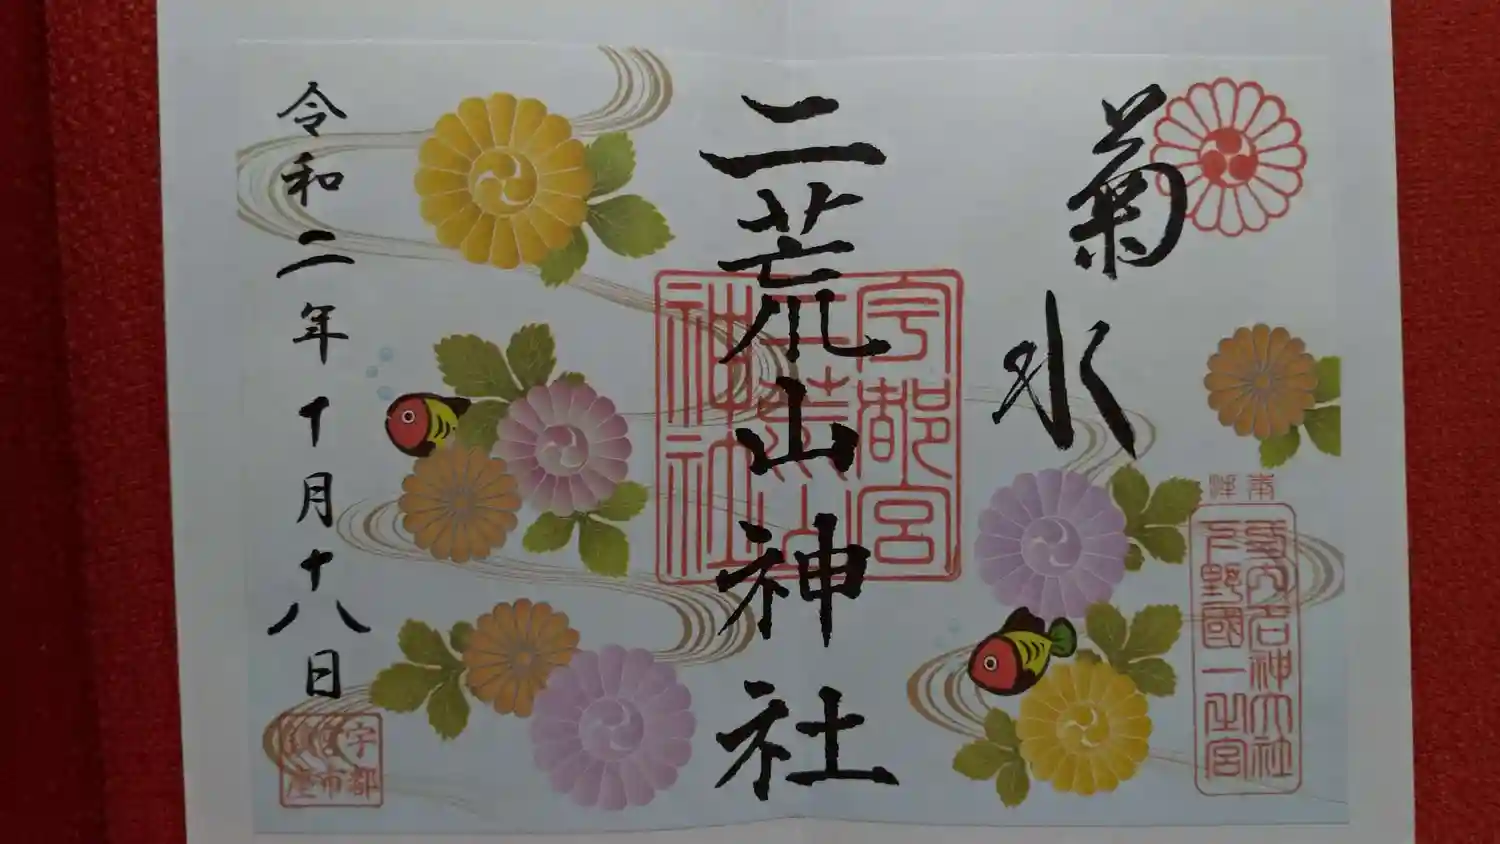 菊水
奉拝
式内名神大社
下野國一之宮
二荒山神社
宇都宮
二荒山
神社
令和二年十月十八日